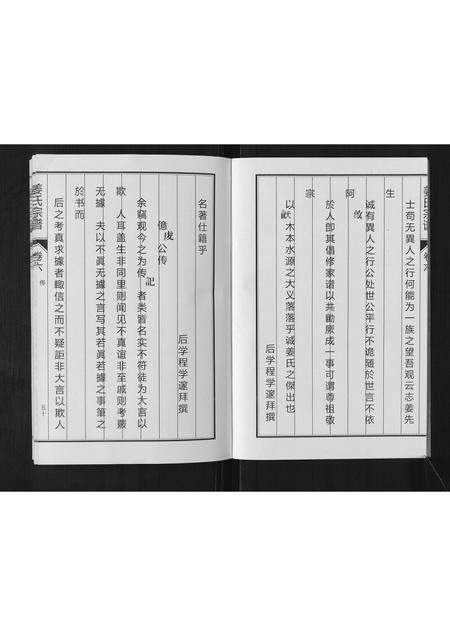 士苟无異人之行何能为一族之望吾观云志姜先
生
诚有異人之行公处世公平行不诡随於世言不依
阿 攸
於人即其倡修家谱以共勷厥成一事可谓尊祖敬
宗
以木本水源之大义落落乎诚姜氏之傑出也
后学程学邃拜撰
姜氏宗谱
卷六
名著仕籍乎
后学程学邃拜撰
億成公传
余竊观今之为传記者类皆名实不符徒为大言以
欺人耳盖生非同里则闻见不真谊非至戚则考覈
无據夫以不眞无據之言写其若眞若據之事筆之
於书而
后之考真求據者輙信之而不疑詎非大言以欺人
姜氏宗谱
卷六
传
五十